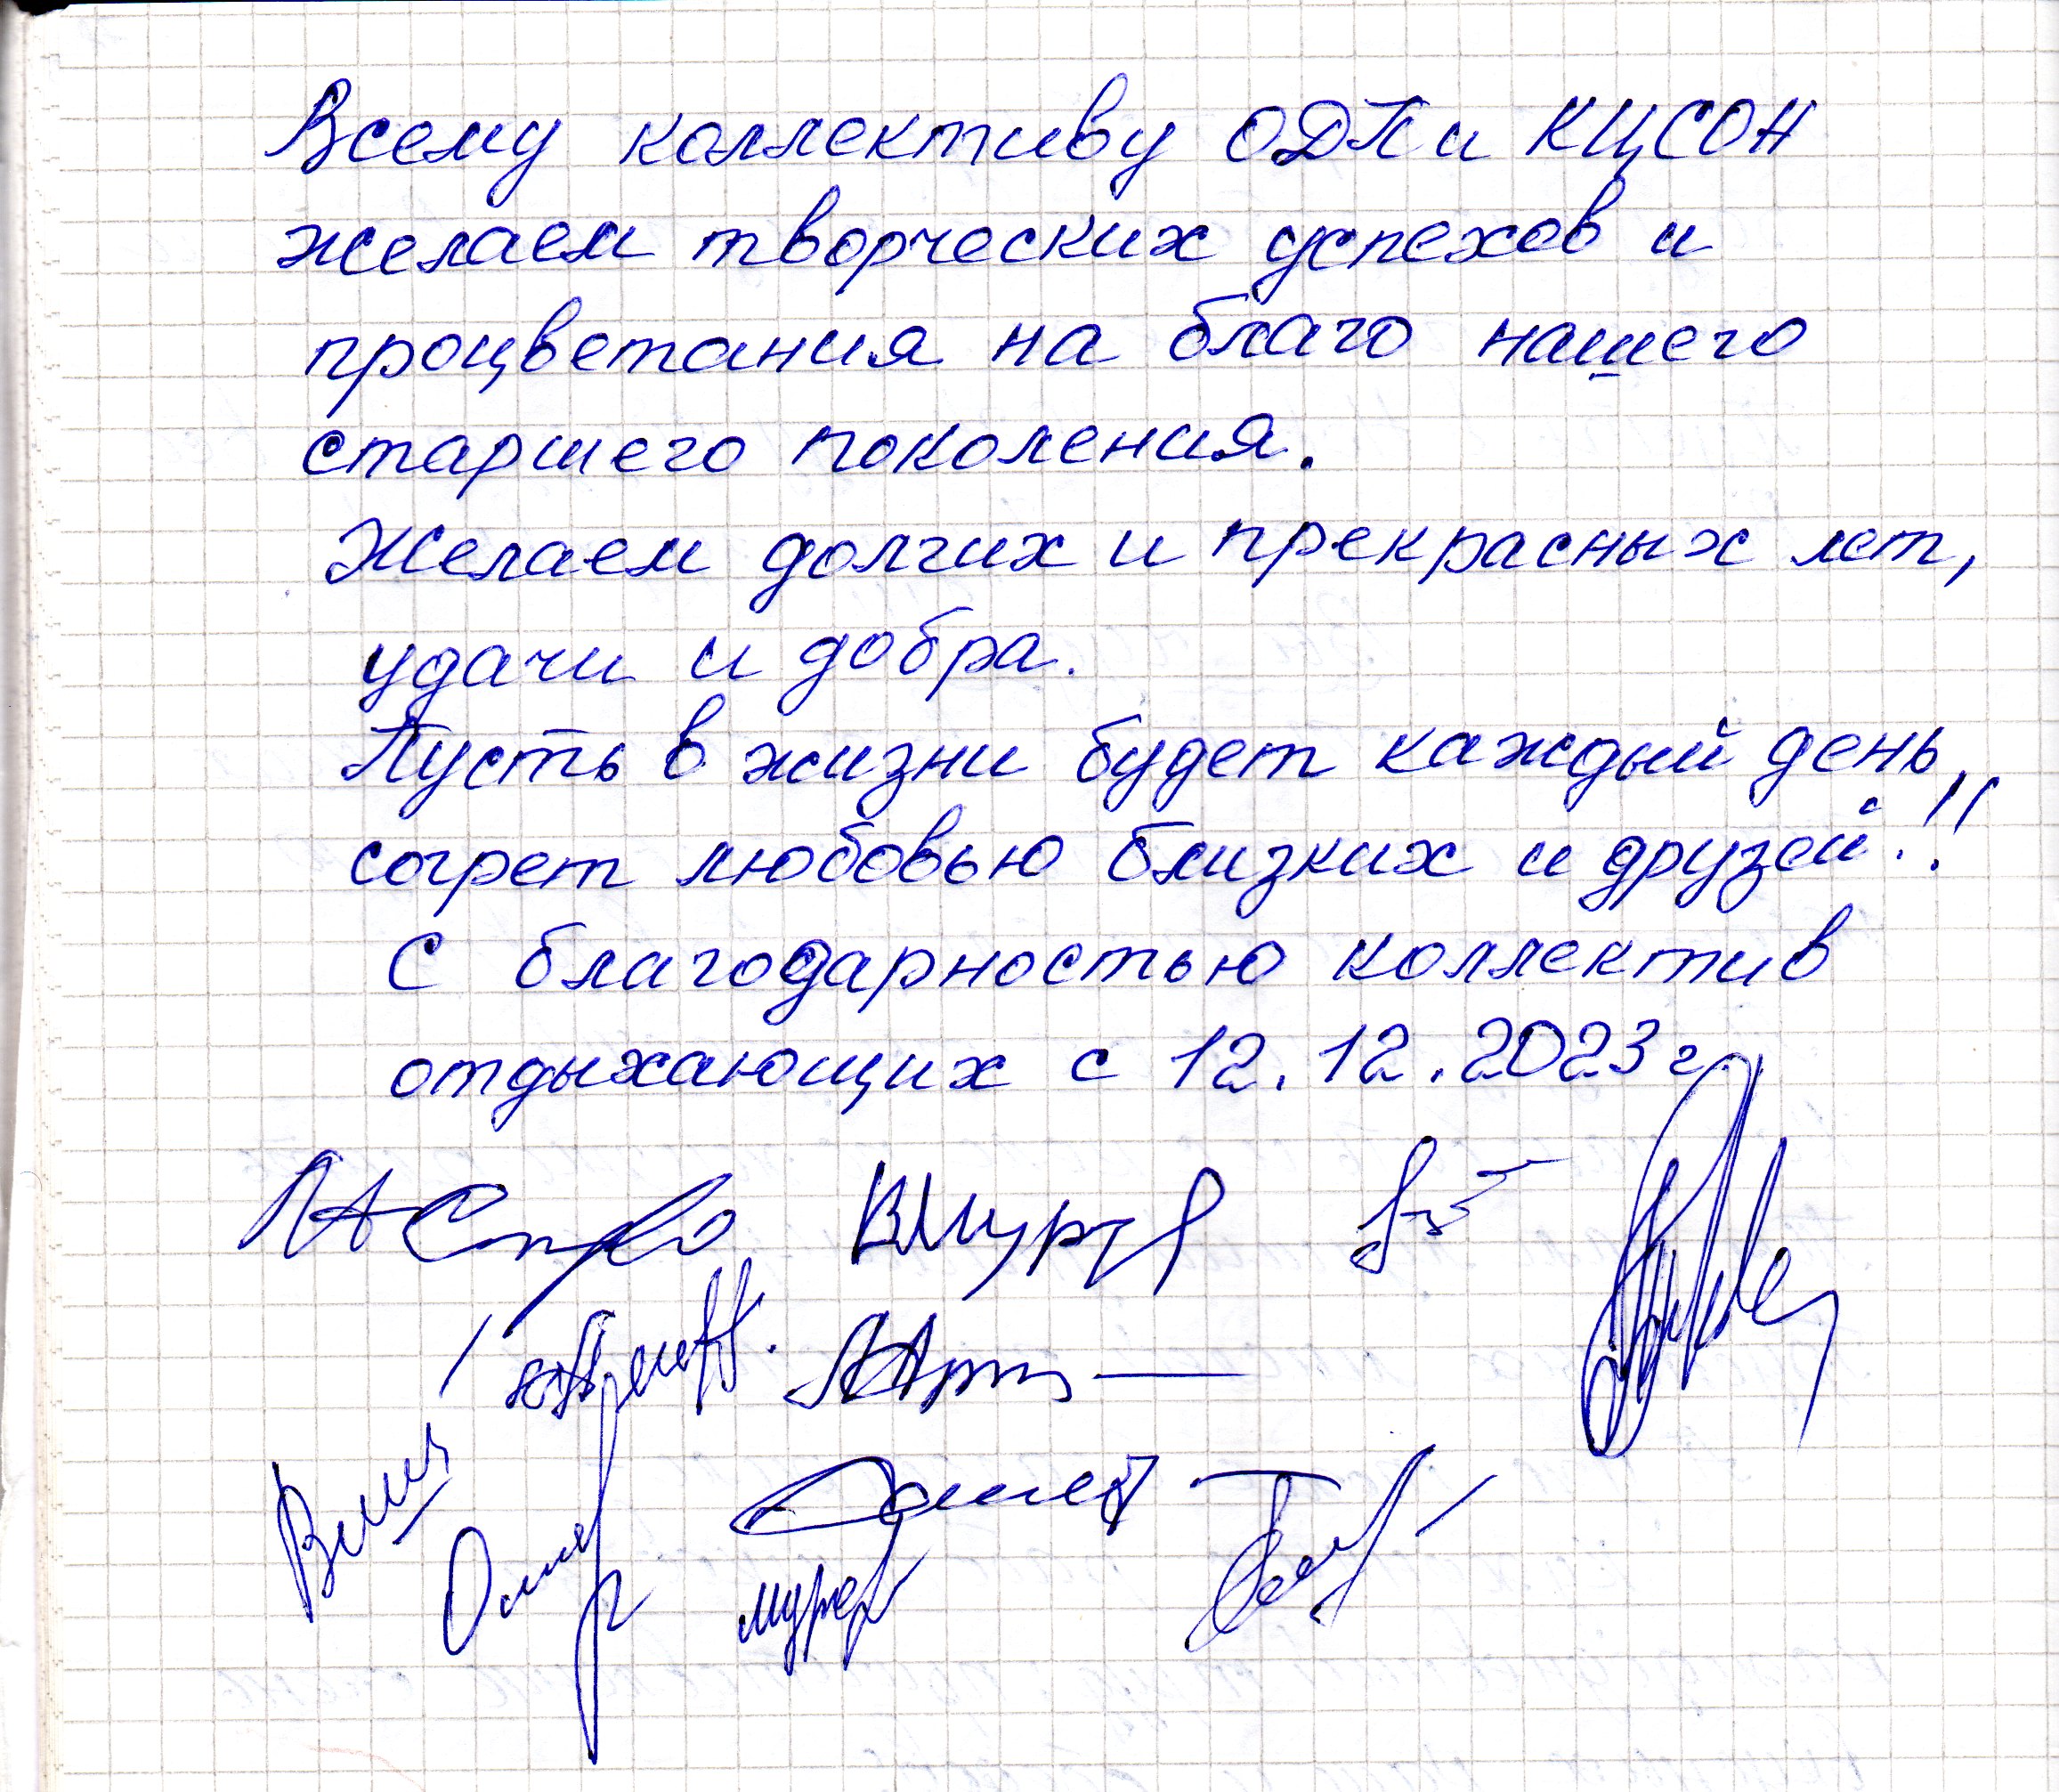 Всему коллективу ОДП и КЦСОН
желаем творческих успехов и
процветания на благо нашего
старшего поколения.
Желаем долгих и прекрасных лет,
удачи и добра.
Пусть в жизни будет каждый день,
согрет любовью близких и друзей!!
С благодарностью коллектив
отдыхающих с 12.12.2023г.